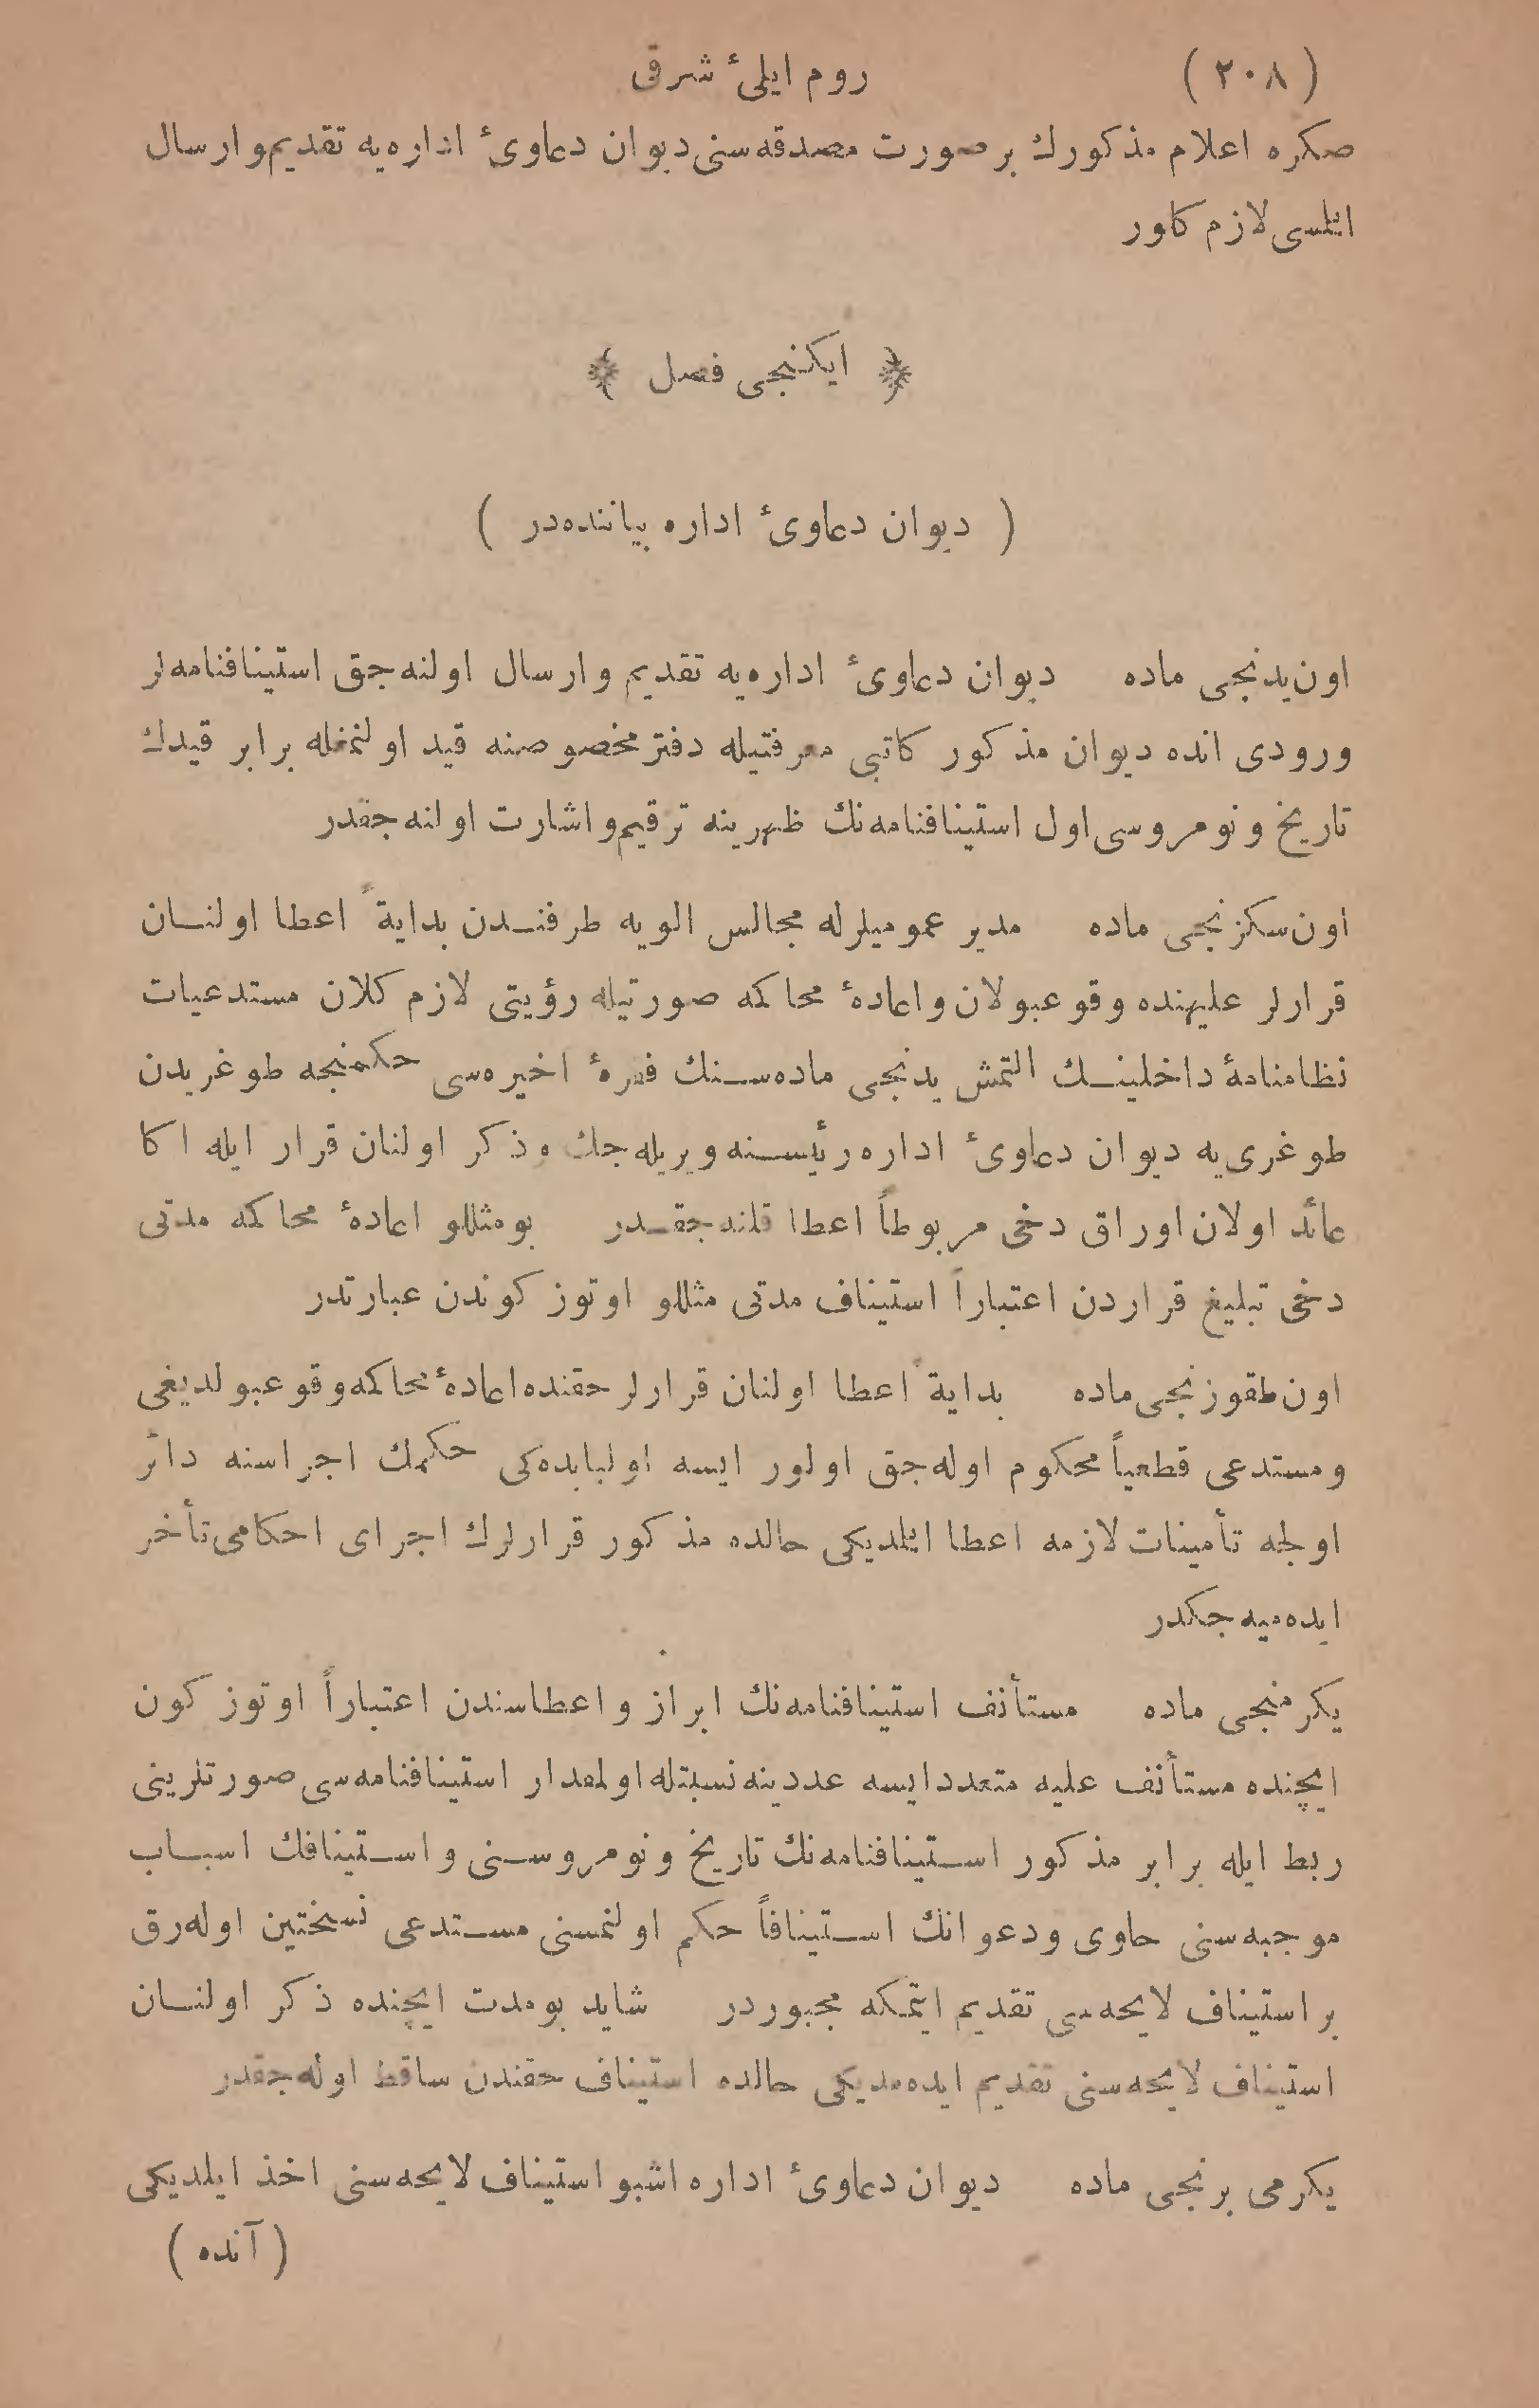 (٢٠٨) روم ایلئ شرقی
صكره اعلام مذكورك بر صورت مصدقه‌سنی دیوان دعاوئ اداره‌یه تقدیم و ارسال
ایلسی لازم كلور
ایكنجی فصل
( دیوان دعاوئ اداره بیاننده‌در )
اون یدنجی ماده دیوان دعاوئ اداره‌یه تقدیم و ارسال اولنه‌جق استینافنامه‌لر
ورودی انده دیوان مذكور كاتبی معرفتیله دفتر مخصوصنه قید اولنمغله برابر قیدك
تاریخ و نومروسی اول استینافنامه‌نك ظهرینه ترقیم و اشارت اولنه‌جقدر
اون سكزنجی ماده مدیر عمومیلرله مجالس الویه طرفنـدن بدایةً اعطا اولنـان
قرارلر علیهنده وقوعبولان و اعادهٔ محاكمه صورتیله رؤیتی لازم كلان مستدعیات
نظامنامهٔ داخلینـك التمش یدنجی ماده‌سـنك فقرهٔ اخیره‌سی حكمنجه طوغریدن
طوغری‌یه دیوان دعاوئ اداره رئیسـنه ویریله‌جك و ذكر اولنان قرار ایله اكا
عائد اولان اوراق دخی مربوطاً اعطا قلنه‌جقـدر بومثللو اعادهٔ محاكمه مدتی
دخی تبلیغ قراردن اعتباراً استیناف مدتی مثللو اوتوز كوندن عبارتدر
اون طقوزنجی ماده بدایةً اعطا اولنان قرارلر حقنده اعادهٔ محاكمه وقوعبولدیغی
و مستدعی قطعیاً محكوم اوله‌جق اولور ایسه اولبابده‌كی حكمك اجراسنه دائر
اولجه تأمینات لازمه اعطا ایلدیكی حالده مذكور قرارلرك اجرای احكامی تأخر
ایده‌میه‌جكدر
یكرمنجی ماده مستأنف استینافنامه‌نك ابراز و اعطاسندن اعتباراً اوتوز كون
ایچنده مستأنف علیه متعدد ایسه عددینه نسبتله اولمقدار استینافنامه‌سی صورتلرینی
ربط ایله برابر مذكور اسـتینافنامه‌نك تاریخ و نومروسـنی و اسـتینافك اسبـاب
موجبه‌سنی حاوی و دعوانك اسـتینافاً حكم اولنمسنی مسـتدعی نسختین اوله‌رق
بر استیناف لایحه‌سی تقدیم ایتمكه مجبوردر شاید بومدت ایچنده ذكر اولنـان
استیناف لایحه‌سنی تقدیم ایده‌مدیكی حالده استیناف حقندن ساقط اوله‌جقدر
یكرمی برنجی ماده دیوان دعاوئ اداره اشبو استیناف لایحه‌سنی اخذ ایلدیكی
( آنده )